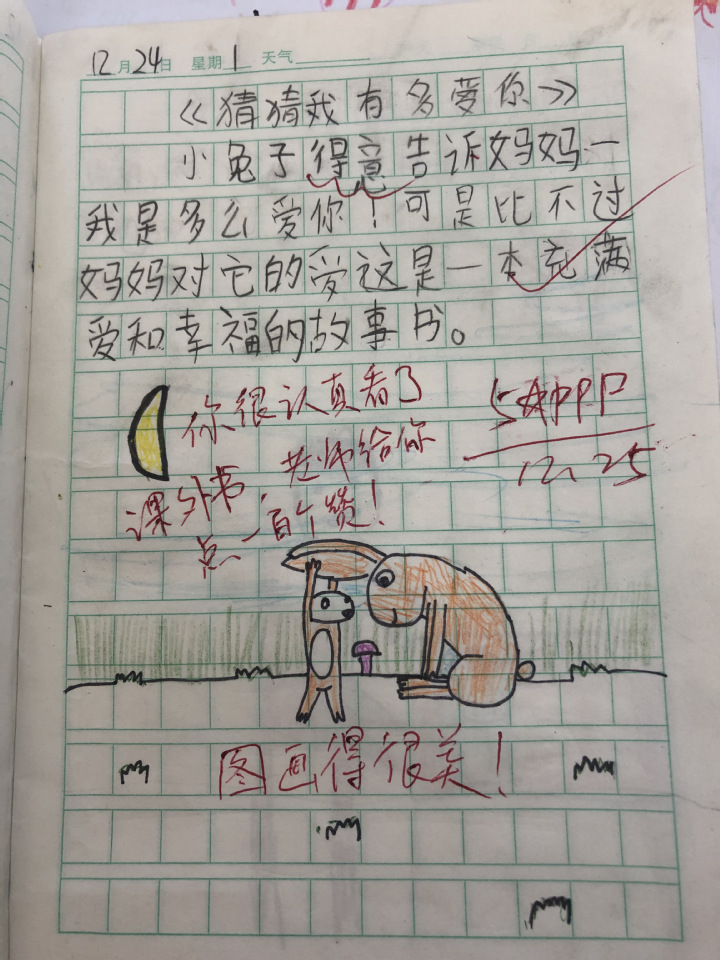 12月24日 星期1 天气
《猜猜我有多爱你》
小兔子得意告诉妈妈一
我是多么爱你！可是比不过
妈妈对它的爱这是一本充满
爱和幸福的故事书。
你很认真看了
课外书，老师给你
点一百个赞！
12.25
图画得很美！